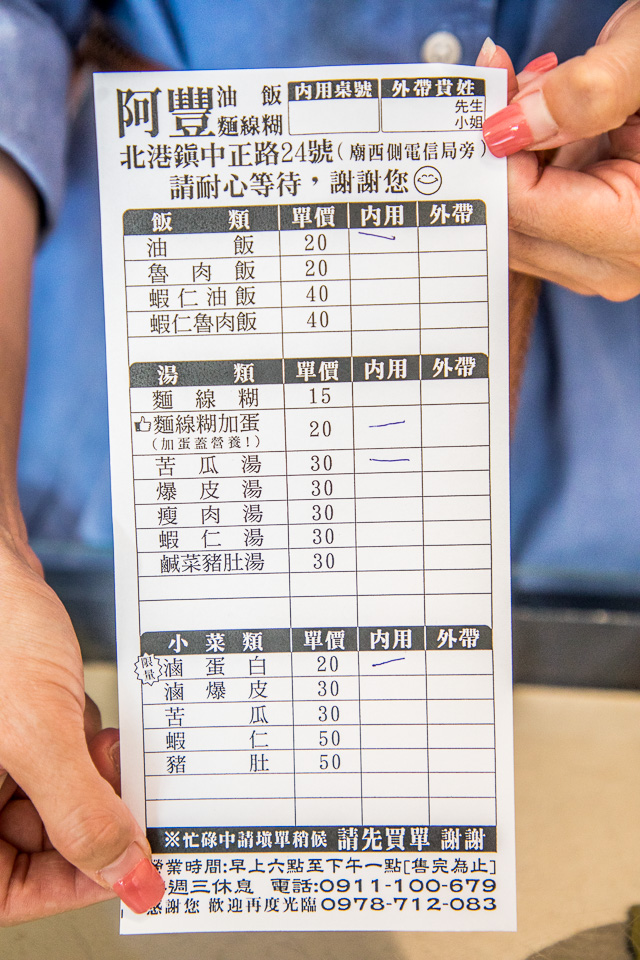 阿豐 油飯 麵線糊 內用桌號 外帶貴姓 先生 小姐
北港鎮中正路24號(廟西側電信局旁)
請耐心等待，謝謝您
飯類 單價 內用 外帶
油飯 20
魯肉飯 20
蝦仁油飯 40
蝦仁魯肉飯 40
湯類 單價 內用 外帶
麵線糊 15
麵線糊加蛋 20
(加蛋蓋營養!)
苦瓜湯 30
爆皮湯 30
瘦肉湯 30
蝦仁湯 30
鹹菜豬肚湯 30
小菜類 單價 內用 外帶
限量 滷蛋白 20
滷爆皮 30
苦瓜 30
蝦仁 50
豬肚 50
※忙碌中請填單稍候 請先買單 謝謝
營業時間:早上六點至下午一點[售完為止]
週三休息 電話:0911-100-679
感謝您 歡迎再度光臨 0978-712-083